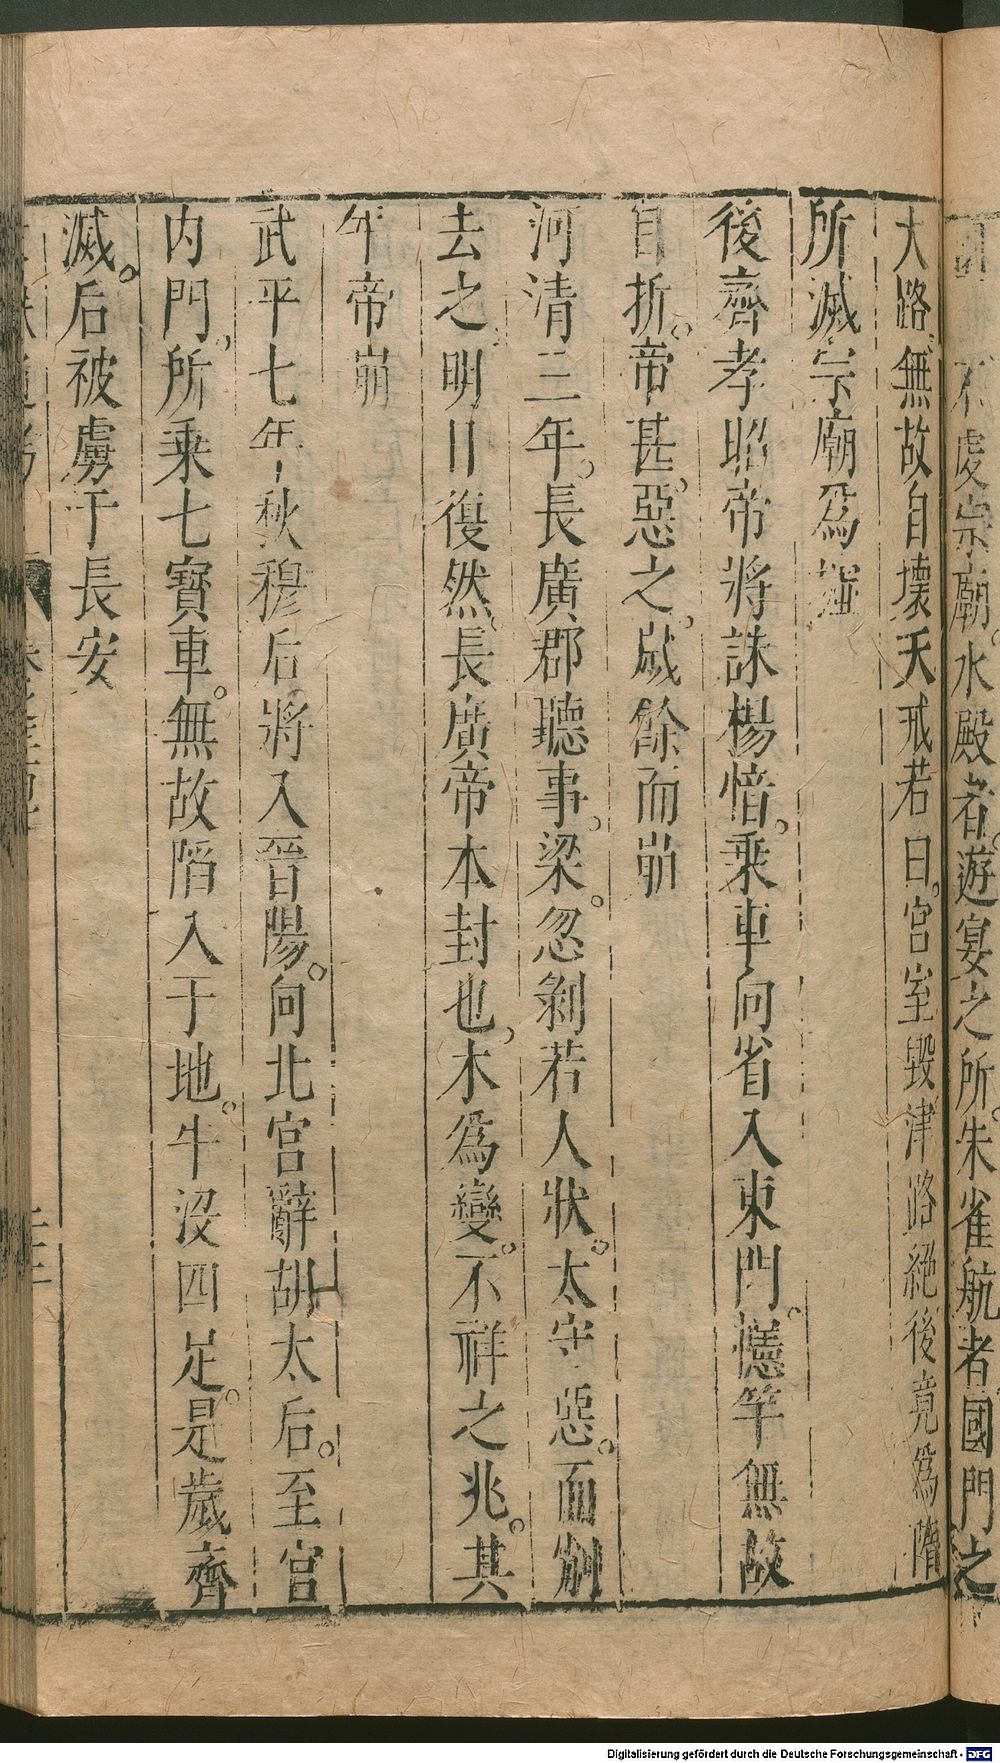 不處宗廟水殿者遊宴之所朱雀航者國門之
大路無故自壞天戒若曰宮室毀津路絕後竟爲隋
所滅宗廟爲墟
後齊孝昭帝將誅楊愔乘車向省入東門幰竿無故
自折帝甚惡之歲餘而崩
河清三年長廣郡聽事梁忽剝若人狀太守惡而剜
去之明日復然長廣帝本封也木爲變不祥之兆其
年帝崩
武平七年秋穆后將入晉陽向北宮辭胡太后至宮
内門所乘七寶車無故陷入于地牛没四足是歲齊
滅后被虜于長安
Digitalisierung gefördert durch die Deutsche Forschungsgemeinschaft - DFG